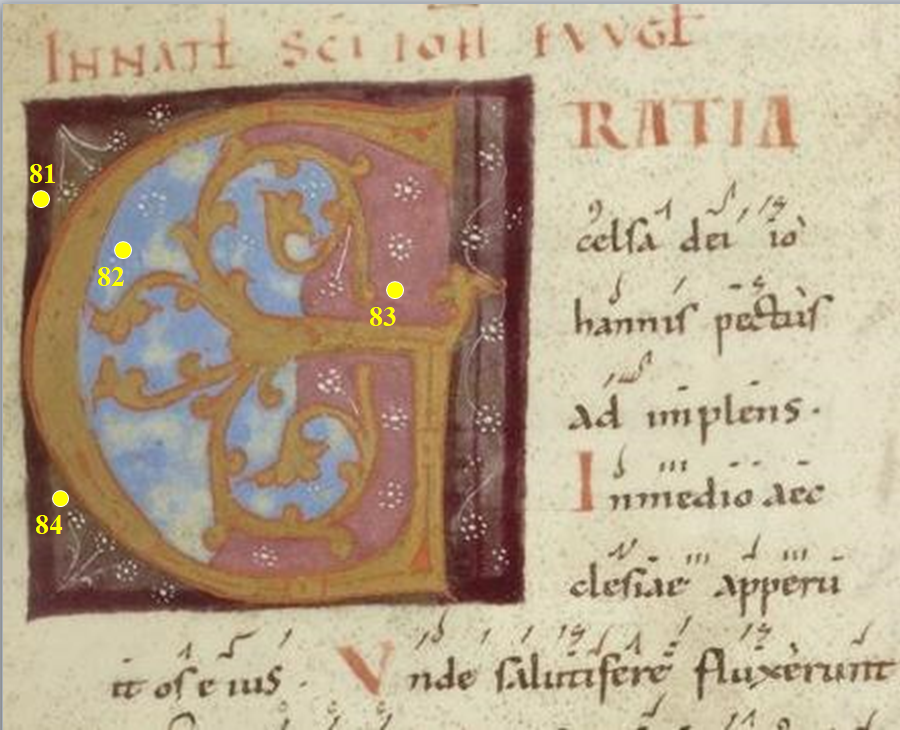 INNATL SCI IOH EVVGL
G
RATIA
81
celsa dei io
82
hannis pectus
83
ad implens.
Inmedio aec
84
clesiae apperu
it os eius. Unde salutiferę fluxerunt